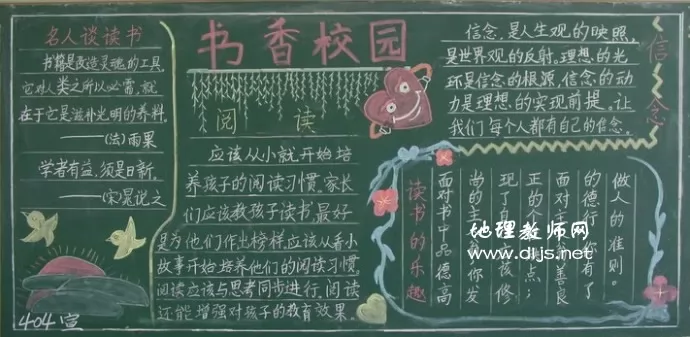 名人谈读书
书籍是改造灵魂的工具.
它对人类之所以必需，就
在于它是滋补光明的养料.
——(法)雨果
学者有益，须是日新。
——宋晁说之
404宣
书香校园
阅 读
应该从小就开始培
养孩子的阅读习惯.家长
们应该教孩子读书，最好
是为他们作出榜样应该从看小
故事开始培养他们的阅读习惯。
阅读应该与思考同步进行，阅读
还能增强对孩子的教育效果。
信念，是人生观的映照，
是世界观的反射。理想的光
环是信念的根源，信念的动
力是理想的实现前提。让
我们每个人都有自己的信念。
信念
读书的乐趣
面对书中品德高
尚的主你发
现了应该修
正的个点；
面对主善良
的德行，你有了
做人的准则。
地理教师网
www.dljs.net